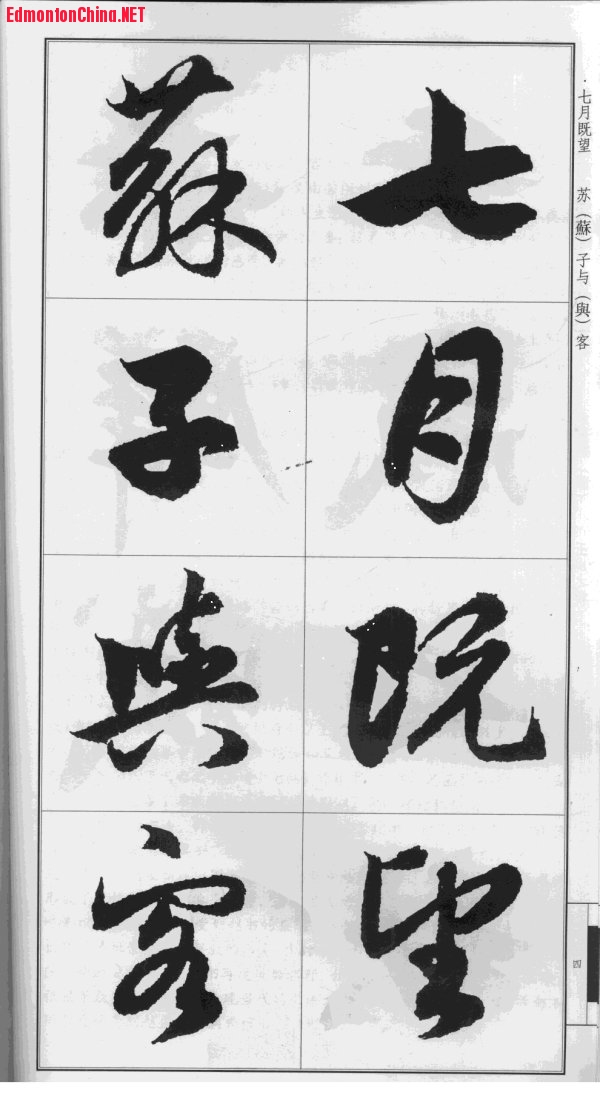 EdmontonChina.NET
·七月既望 苏（蘇）子与（與）客
七月既望
蘇子與客
四